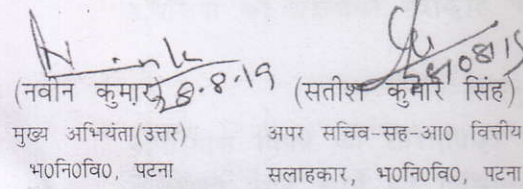 (नवीन कुमार) 28.8.19
मुख्य अभियंता(उत्तर)
भ0नि0वि0, पटना
(सतीश कुमार सिंह)
अपर सचिव-सह-आ0 वित्तीय
सलाहकार, भ0नि0वि0, पटना